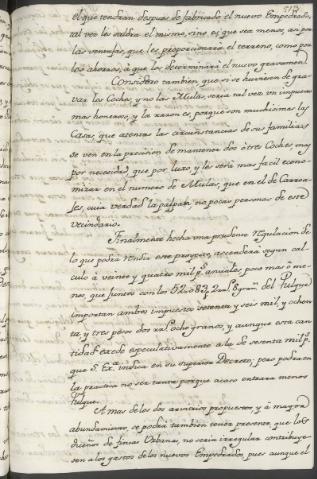 el que tendrán despues de fabricado el nuevo Empedrado,
tal vez les saldrá el mismo, sino es que sea menos, asi por
las ventajas, que les proporcionará el terreno, como por
los ahorros, á que los determinará el nuevo gravamen.
Considero tambien, que si se huviesen de gra-
var los Coches, y no las Mulas, sería tal vez un impuesto
mas honeroso, y la razon es, porque son muchisimas las
Casas, que atentas las circunstancias de sus familias,
se ven en la precision de mantener dos ó tres Coches mas
por necesidad, que por luxo, y les será mas facil econo-
mizar en el numero de Mulas, que en el de Carroa-
ges, cuia verdad la palpan no pocas personas de este
vecindario.
Finalmente hecha una prudente regulacion de
lo que podrá rendir este proyecto, ascenderá segun cal-
culo á veinte y quatro mil p.s anuales, poco mas ó me-
nos, que juntos con los del Pulque
importan ambos impuestos setenta y seis mil, y ochen
ta y tres pesos dos r.s ocho granos, y aunque esta can-
tidad excede especulativamente á la de sesenta mil p.s
que S. Ex.a indica en su superior Decreto; pero podrá en
la practica no ser tanta, porque acaso entrará menos
Pulque.
A mas de los dos arvitrios propuestos, y á mayor
abundamiento, se podrá tambien tener presente, que los
dueños de fincas Urbanas, no sería irregular contribuye-
sen á los gastos de los nuevos Empedrados, pues aunque el